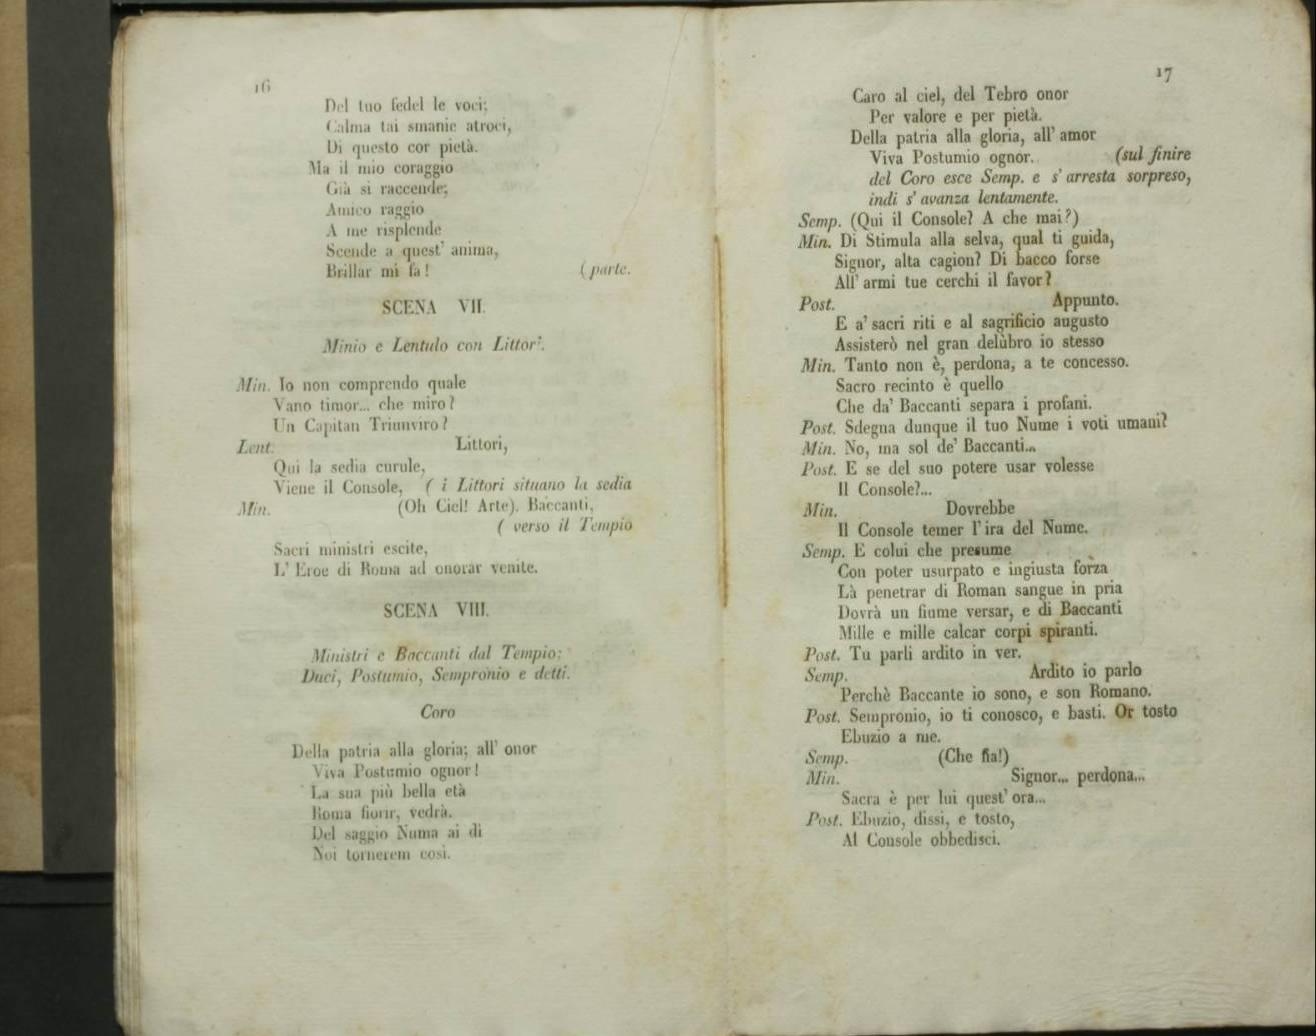 16
Del tuo fedel le voci;
Calma tai smanie atroci,
Di questo cor pietà.
Ma il mio coraggio
Già si raccende;
Amico raggio
A me risplende
Scende a quest' anima,
Brillar mi fa! (parte.
SCENA VII.
Minio e Lentulo con Littori.
Min. Io non comprendo quale
Vano timor... che miro?
Un Capitan Triumviro?
Lent. Littori,
Qui la sedia curule,
Viene il Console, ( i Littori situano la sedia
Min. (Oh Ciel! Arte). Baccanti,
( verso il Tempio
Sacri ministri escite,
L' Eroe di Roma ad onorar venite.
SCENA VIII.
Ministri e Baccanti dal Tempio;
Duci, Postumio, Sempronio e detti.
Coro
Della patria alla gloria; all' onor
Viva Postumio ognor!
La sua più bella età
Roma fiorir, vedrà.
Del saggio Numa ai dì
Noi tornerem così.
17
Caro al ciel, del Tebro onor
Per valore e per pietà.
Della patria alla gloria, all' amor
Viva Postumio ognor. (sul finire
del Coro esce Semp. e s' arresta sorpreso,
indi s' avanza lentamente.
Semp. (Qui il Console? A che mai?)
Min. Di Stimula alla selva, qual ti guida,
Signor, alta cagion? Di bacco forse
All' armi tue cerchi il favor?
Post. Appunto.
E a' sacri riti e al sagrificio augusto
Assisterò nel gran delùbro io stesso
Min. Tanto non è, perdona, a te concesso.
Sacro recinto è quello
Che da' Baccanti separa i profani.
Post. Sdegna dunque il tuo Nume i voti umani?
Min. No, ma sol de' Baccanti...
Post. E se del suo potere usar volesse
Il Console?...
Min. Dovrebbe
Il Console temer l' ira del Nume.
Semp. E colui che presume
Con poter usurpato e ingiusta forza
Là penetrar di Roman sangue in pria
Dovrà un fiume versar, e di Baccanti
Mille e mille calcar corpi spiranti.
Post. Tu parli ardito in ver.
Semp. Ardito io parlo
Perchè Baccante io sono, e son Romano.
Post. Sempronio, io ti conosco, e basti. Or tosto
Ebuzio a me.
Semp. (Che fia!)
Min. Signor... perdona...
Sacra è per lui quest' ora...
Post. Ebuzio, dissi, e tosto,
Al Console obbedisci.